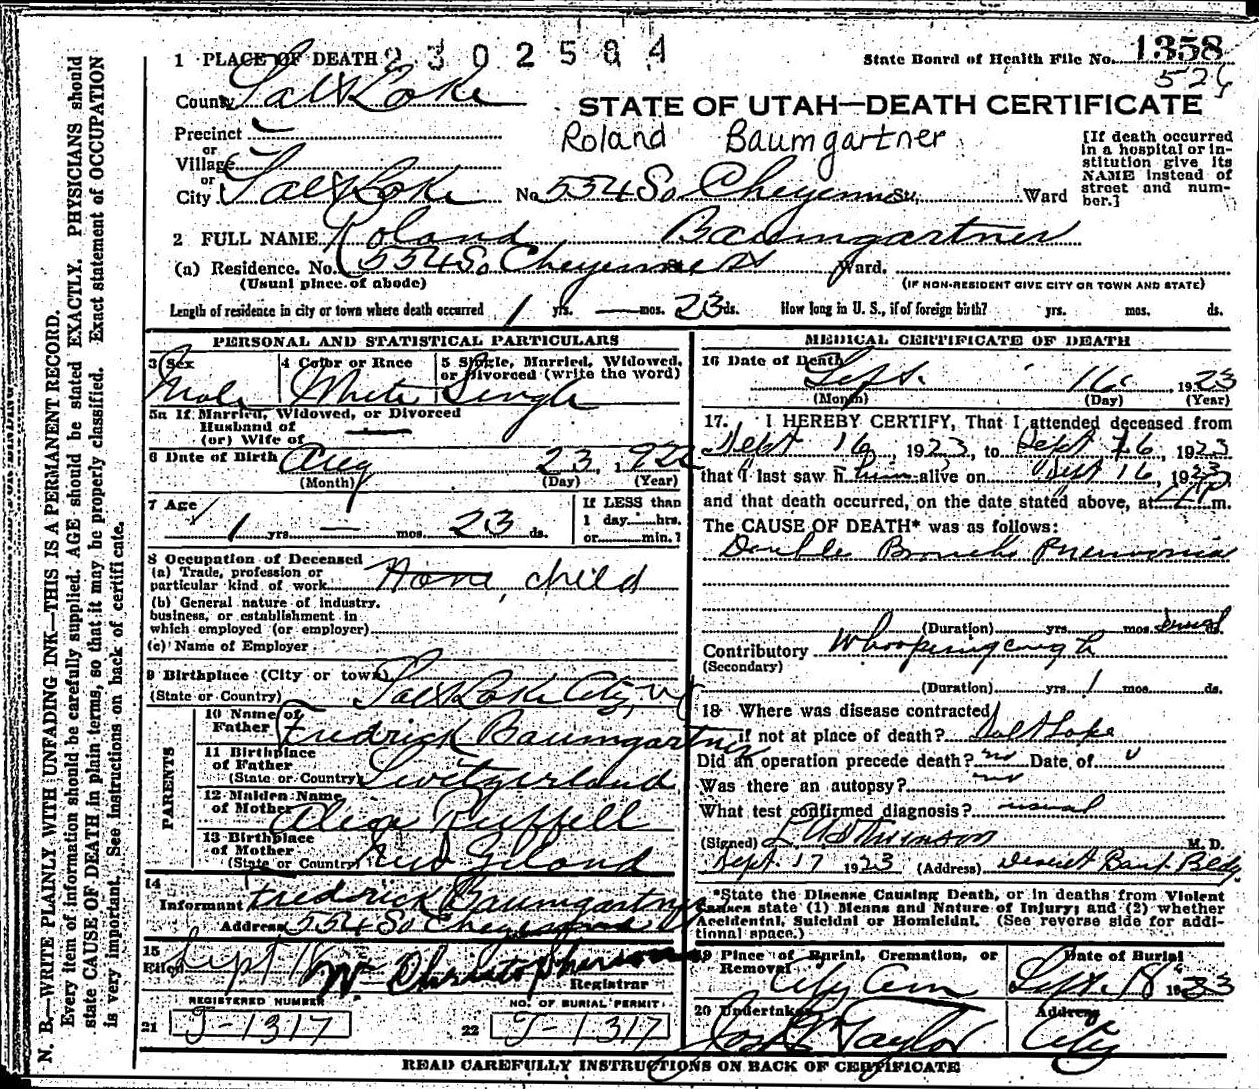 1 PLACE OF DEATH 2302584
State Board of Health File No. 1358
County Salt Lake
526
STATE OF UTAH—DEATH CERTIFICATE
Precinct
or
Village
or
City Salt Lake No. 554 So Cheyenne St. Ward
Roland Baumgartner
[If death occurred in a hospital or in-
stitution give its
NAME instead of
street and num-
ber.]
2 FULL NAME Roland Baumgartner
(a) Residence. No. 554 So Cheyenne St Ward.
(Usual place of abode) (IF NON-RESIDENT GIVE CITY OR TOWN AND STATE)
Length of residence in city or town where death occurred 1 yrs. — mos. 23 ds. How long in U. S., if of foreign birth? yrs. mos. ds.
PERSONAL AND STATISTICAL PARTICULARS
3 Sex Male
4 Color or Race White
5 Single, Married, Widowed,
or Divorced (write the word) Single
5a If Married, Widowed, or Divorced
Husband of
(or) Wife of —
6 Date of Birth Aug 23, 1922
(Month) (Day) (Year)
7 Age 1 yrs. — mos. 23 ds.
If LESS than
1 day hrs.
or min.?
8 Occupation of Deceased
(a) Trade, profession or
particular kind of work None, child
(b) General nature of industry,
business, or establishment in
which employed (or employer)
(c) Name of Employer
9 Birthplace (City or town)
(State or Country) Salt Lake City, Ut
PARENTS
10 Name of
Father Fredrick Baumgartner
11 Birthplace
of Father
(State or Country) Switzerland
12 Maiden Name
of Mother Ruffell
13 Birthplace
of Mother
(State or Country)
14
Informant Fredrick Baumgartner
Address 554 So Cheyenne
15
Filed Sept 18 Wm Christopherson
Registrar
REGISTERED NUMBER
21 J-1317
NO. OF BURIAL PERMIT.
22 J-1317
MEDICAL CERTIFICATE OF DEATH
16 Date of Death Sept. 16 1923
(Month) (Day) (Year)
17. I HEREBY CERTIFY, That I attended deceased from
Sept 16, 1923, to Sept 16, 1923
that I last saw him alive on Sept 16, 1923
and that death occurred, on the date stated above, at m.
The CAUSE OF DEATH* was as follows:
Double Broncho Pneumonia
(Duration) yrs. mos. ds.
Contributory Whooping cough
(Secondary)
(Duration) yrs. 1 mos. ds.
18 Where was disease contracted
if not at place of death? Salt Lake
Did an operation precede death? no Date of
Was there an autopsy? no
What test confirmed diagnosis? usual
(Signed) M. D.
Sept. 17 1923 (Address) Deseret Bank Bldg
*State the Disease Causing Death, or in deaths from Violent
Causes state (1) Means and Nature of Injury; and (2) whether
Accidental, Suicidal or Homicidal. (See reverse side for addi-
tional space.)
19 Place of Burial, Cremation, or
Removal City Cem
Date of Burial
Sept. 18 1923
20 Undertaker Taylor
Address
City
READ CAREFULLY INSTRUCTIONS ON BACK OF CERTIFICATE
N. B.—WRITE PLAINLY WITH UNFADING INK—THIS IS A PERMANENT RECORD.
Every item of information should be carefully supplied. AGE should be stated EXACTLY. PHYSICIANS should
state CAUSE OF DEATH in plain terms, so that it may be properly classified. Exact statement of OCCUPATION
is very important. See instructions on back of certificate.